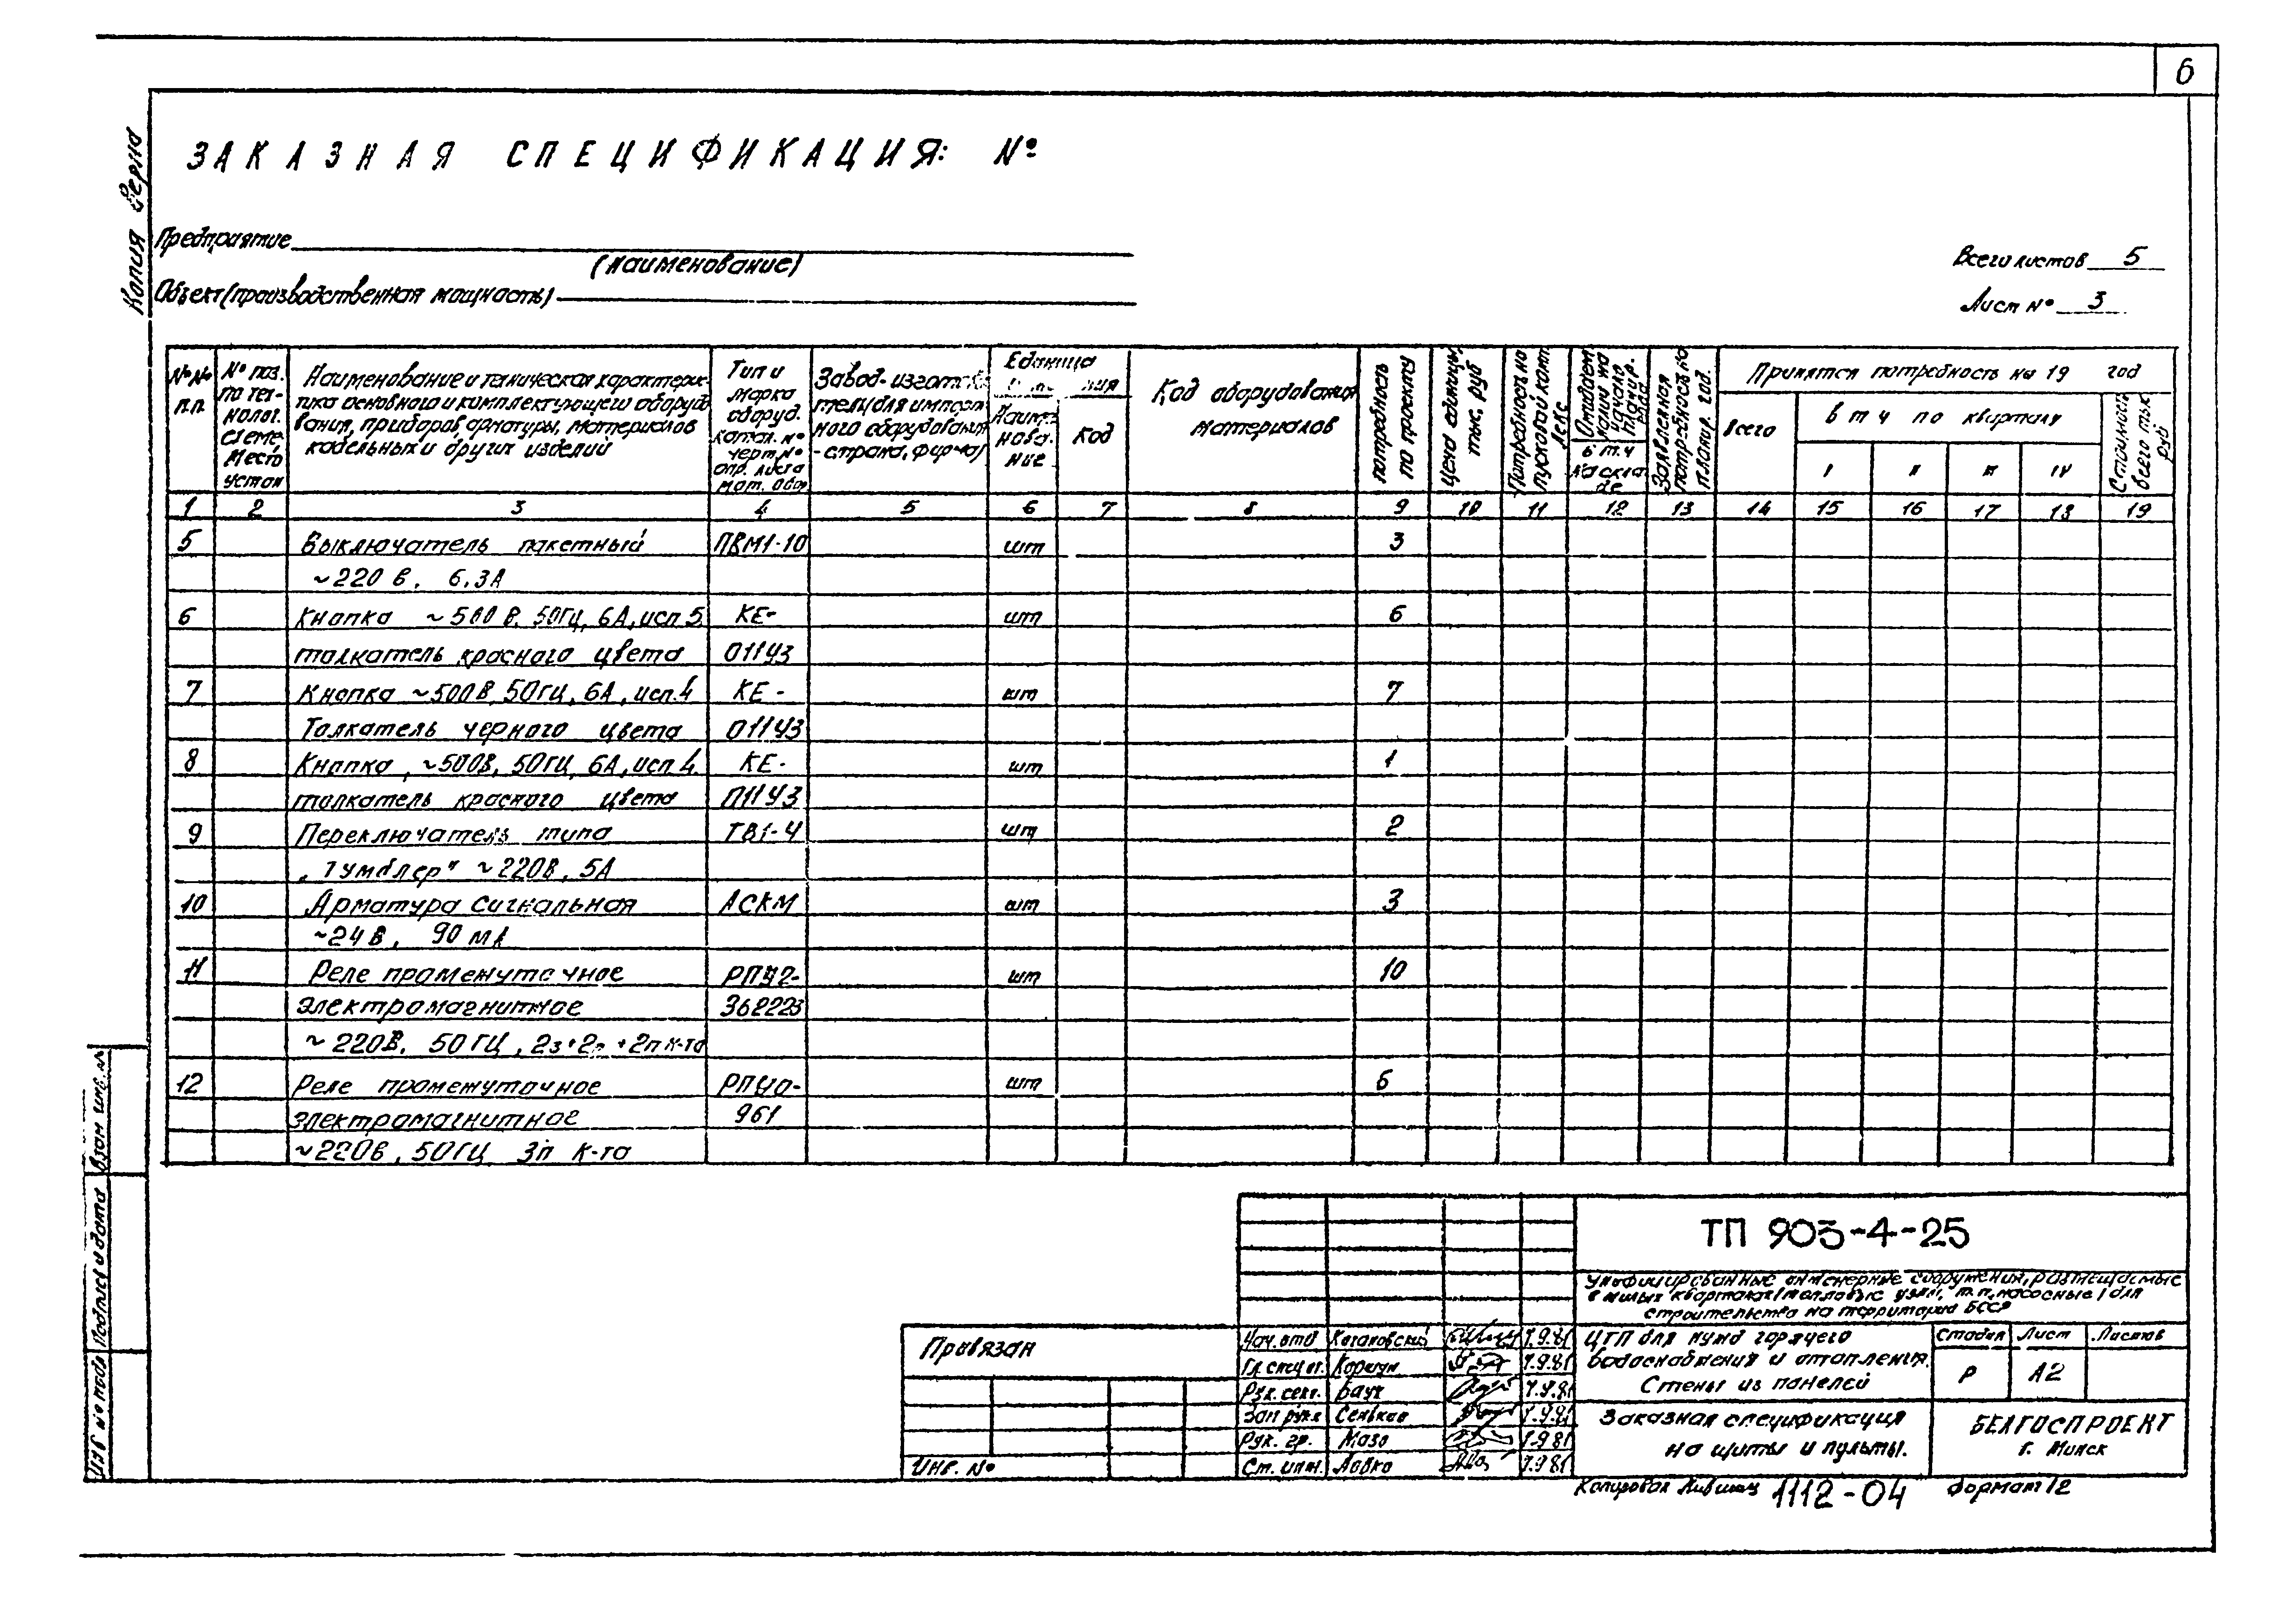 6
Копия верна
ЗАКАЗНАЯ СПЕЦИФИКАЦИЯ: №
Предприятие
(наименование)
Объект (производственная мощность)
Всего листов 5
Лист № 3
№№ п.п.
№ поз. по технолог. схеме. Место устан
Наименование и техническая характерис-
тика основного и комплектующего оборудо
вания, приборов, арматуры, материалов
кабельных и других изделий
Тип и
марка
оборуд.
катал. №
черт. №
опр. листа
мат. обор
Завод-изготови
тель для импорт
ного оборудования
-страна, фирма)
Единица
Наиме
нова-
ние
Код
Код оборудования
материалов
потребность
по проекту
Цена единицы,
тыс. руб
Потребность на
пусковой комп
лекс
Ожидаем
налич на
начало
планир.
года
в т.ч
на скла
де
Заявленная
потребность на
планир. год.
Принятая потребность на 19 год
всего
в т ч по кварталу
I II III IV
Стоимость
всего тыс
руб
1 2 3 4 5 6 7 8 9 10 11 12 13 14 15 16 17 18 19
5 Выключатель пакетный ПВМ1-10 шт 3
~220 в, 6.3А
6 Кнопка ~500 В, 50Гц, 6А, исп 5. КЕ- шт 6
толкатель красного цвета 011У3
7 Кнопка ~500В, 50Гц, 6А, исп.4 КЕ- шт 7
Толкатель черного цвета 011У3
8 Кнопка, ~500В, 50Гц, 6А, исп 4. КЕ- шт 1
толкатель красного цвета 011У3
9 Переключатель типа ТВ1-4 шт 2
„Тумблер" ~220В, 5А
10 Арматура сигнальная АСКМ шт 3
~24 В, 90 мА
11 Реле промежуточное РПУ2- шт 10
электромагнитное 362223
~220В, 50Гц, 2з+2р+2п к-та
12 Реле промежуточное РПУ0- шт 6
электромагнитное 961
~220в, 50Гц 3п к-та
Взам инв. №
Подпись и дата
Инв № подл
Привязан
Инв. №
Нач. отд Кагановский 7.9.81
Гл. спец от. Коршун 7.9.81
Рук. сект. Баук 7.9.81
Зап рук. Сенькин 7.9.81
Рук. гр. Мазо 7.9.81
Ст. инж. Ловко 7.9.81
ТП 903-4-25
Унифицированные инженерные сооружения, размещаемые
в жилых кварталах (тепловые узлы, т.п, насосные) для
строительства на территории БССР
ЦТП для нужд горячего
водоснабжения и отопления.
Стены из панелей
Стадия Лист Листов
Р А2
Заказная спецификация
на щиты и пульты.
БЕЛГИСПРОЕКТ
г. Минск
Копировал 1112-04 Формат 12